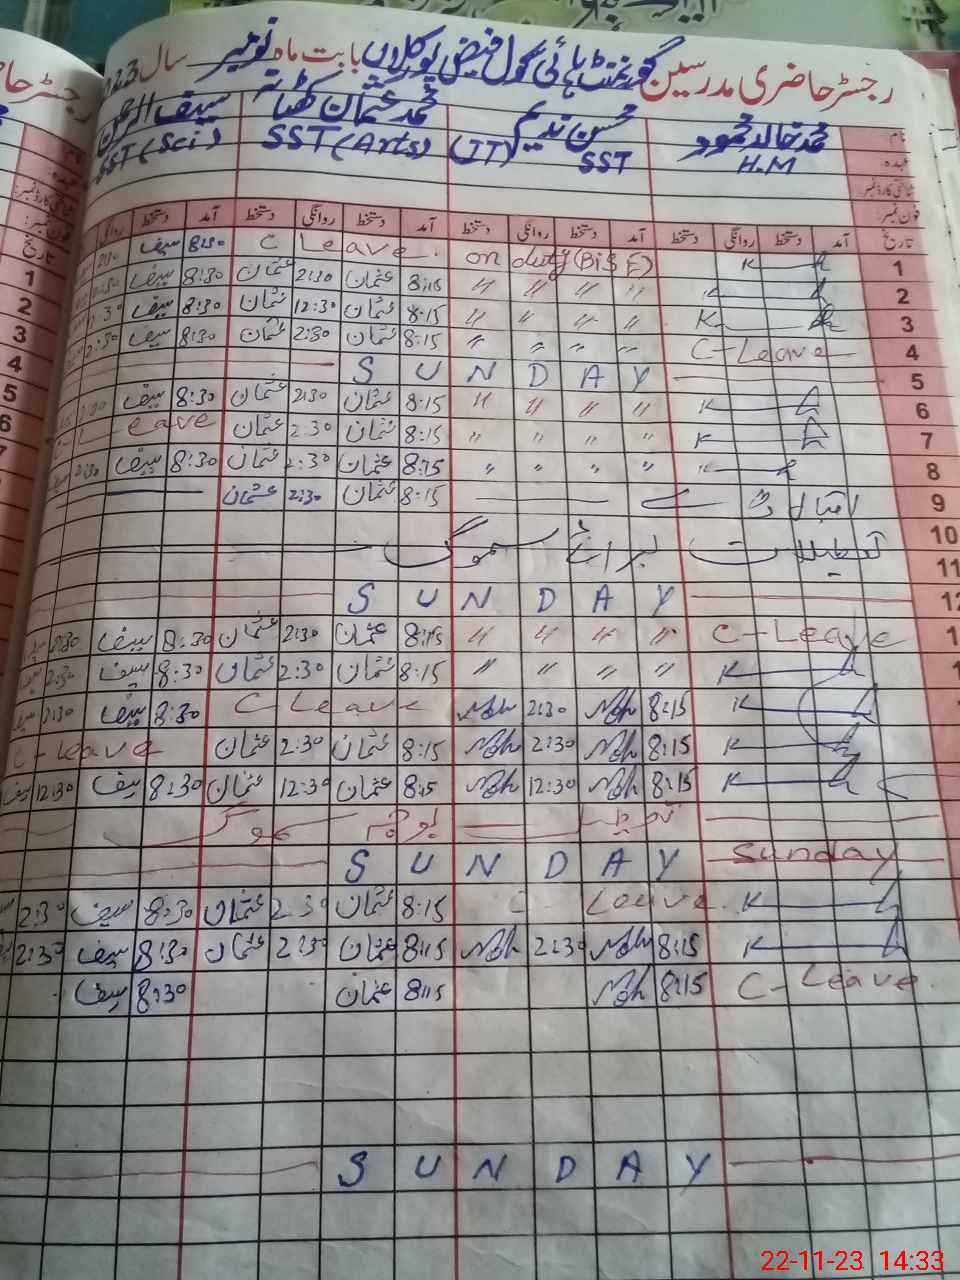 رجسٹر حاضری مدرسین گورنمنٹ ہائی سکول فیض پور کلاں بابت ماہ نومبر سال 2023
نام محمد خالد محمود محسن ندیم محمد عثمان سیف الرحمن
عہدہ H.M SST (IT) SST (Arts) SST (Sci)
شناختی کارڈ نمبر:
فون نمبر:
تاریخ آمد دستخط روانگی دستخط آمد دستخط روانگی دستخط آمد دستخط روانگی دستخط آمد دستخط روانگی
1 K on duty (BISE) C Leave 8:30 سیف
2 K " " " " 8:15 عثمان 2:30 عثمان 8:30 سیف 2:30
3 K " " " " 8:15 عثمان 12:30 عثمان 8:30 سیف
4 C-Leave " " " " 8:15 عثمان 2:30 عثمان 8:30 سیف 2:30
5 S U N D A Y
6 K " " " " 8:15 عثمان 2:30 عثمان 8:30 سیف 2:30
7 K " " " " 8:15 عثمان 2:30 عثمان C-Leave
8 K " " " " 8:15 عثمان 2:30 عثمان 8:30 سیف 2:30
9 اقبال ڈے 8:15 عثمان 2:30 عثمان
10 تعطیلات برائے سموگ
11
12 S U N D A Y
1 C-Leave " " " " 8:15 عثمان 2:30 عثمان 8:30 سیف 2:30
1 K " " " " 8:15 عثمان 2:30 عثمان 8:30 سیف 2:30
K 8:15 2:30 C-Leave 8:30 سیف 2:30
K 8:15 2:30 8:15 عثمان 2:30 عثمان C-leave
K 8:15 12:30 8:15 عثمان 12:30 عثمان 8:30 سیف 12:30 سیف
تعطیل بوجہ سموگ
Sunday S U N D A Y
K C-Leave 8:15 عثمان 2:30 عثمان 8:30 سیف 2:30
K 8:15 2:30 8:15 عثمان 2:30 عثمان 8:30 سیف 2:30
C-Leave 8:15 8:15 عثمان 8:30 سیف
S U N D A Y
رجسٹر حا
نام
عہدہ
شناختی کارڈ نمبر:
فون نمبر:
تاریخ
1
2
3
4
5
6
22-11-23 14:33